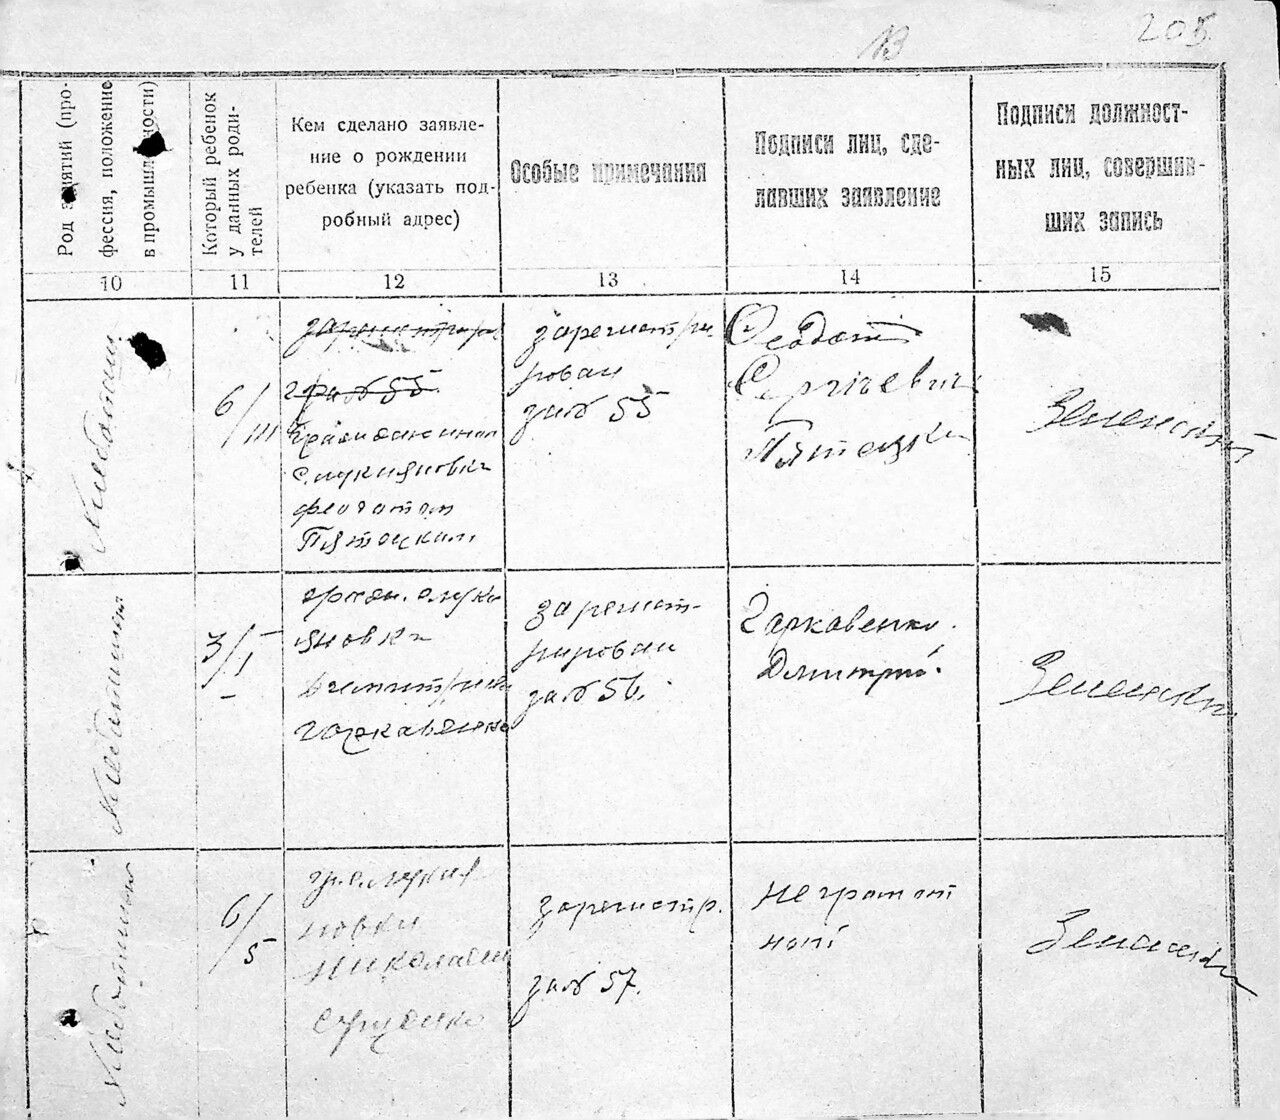 205
13
Род занятий (про-
фессия, положение
в промышленности)
Который ребенок
у данных роди-
телей
Кем сделано заявле-
ние о рождении
ребенка (указать под-
робный адрес)
Особые примечания
Подписи лиц, сде-
лавших заявление
Подписи должност-
ных лиц, совершив-
ших запись
10
11
12
13
14
15
6/III
зарегистрир.
за № 55
гражданином
с. лукияновки
феодотом
Пятецким
зарегистри
рован
за № 55
Феодот
Сергиевич
Пятецки
3/I
граж. с. луки
яновки
Дмитрием
гаркавенко
зарегист-
рирован
за № 56.
Гаркавенко.
Дмитрий.
6/5
гр. с. лукия
новки
николаем
зарегистр.
за № 57.
неграмот
ный